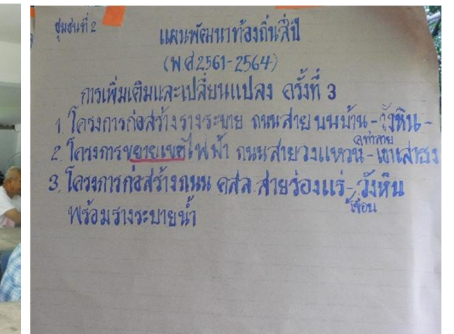 ชุมชนที่ 2
แผนพัฒนาท้องถิ่นสี่ปี
(พ.ศ 2561-2564)
การเพิ่มเติมและเปลี่ยนแปลง ครั้งที่ 3
1. โครงการก่อสร้างรางระบาย ถนนสาย บนบ้าน - วังหิน -
2. โครงการขยายเขตไฟฟ้า ถนนสายวงแหวน - เขาเสาธง
3. โครงการก่อสร้างถนน คสล สายร่องแร่ - วังหิน
พร้อมรางระบายน้ำ